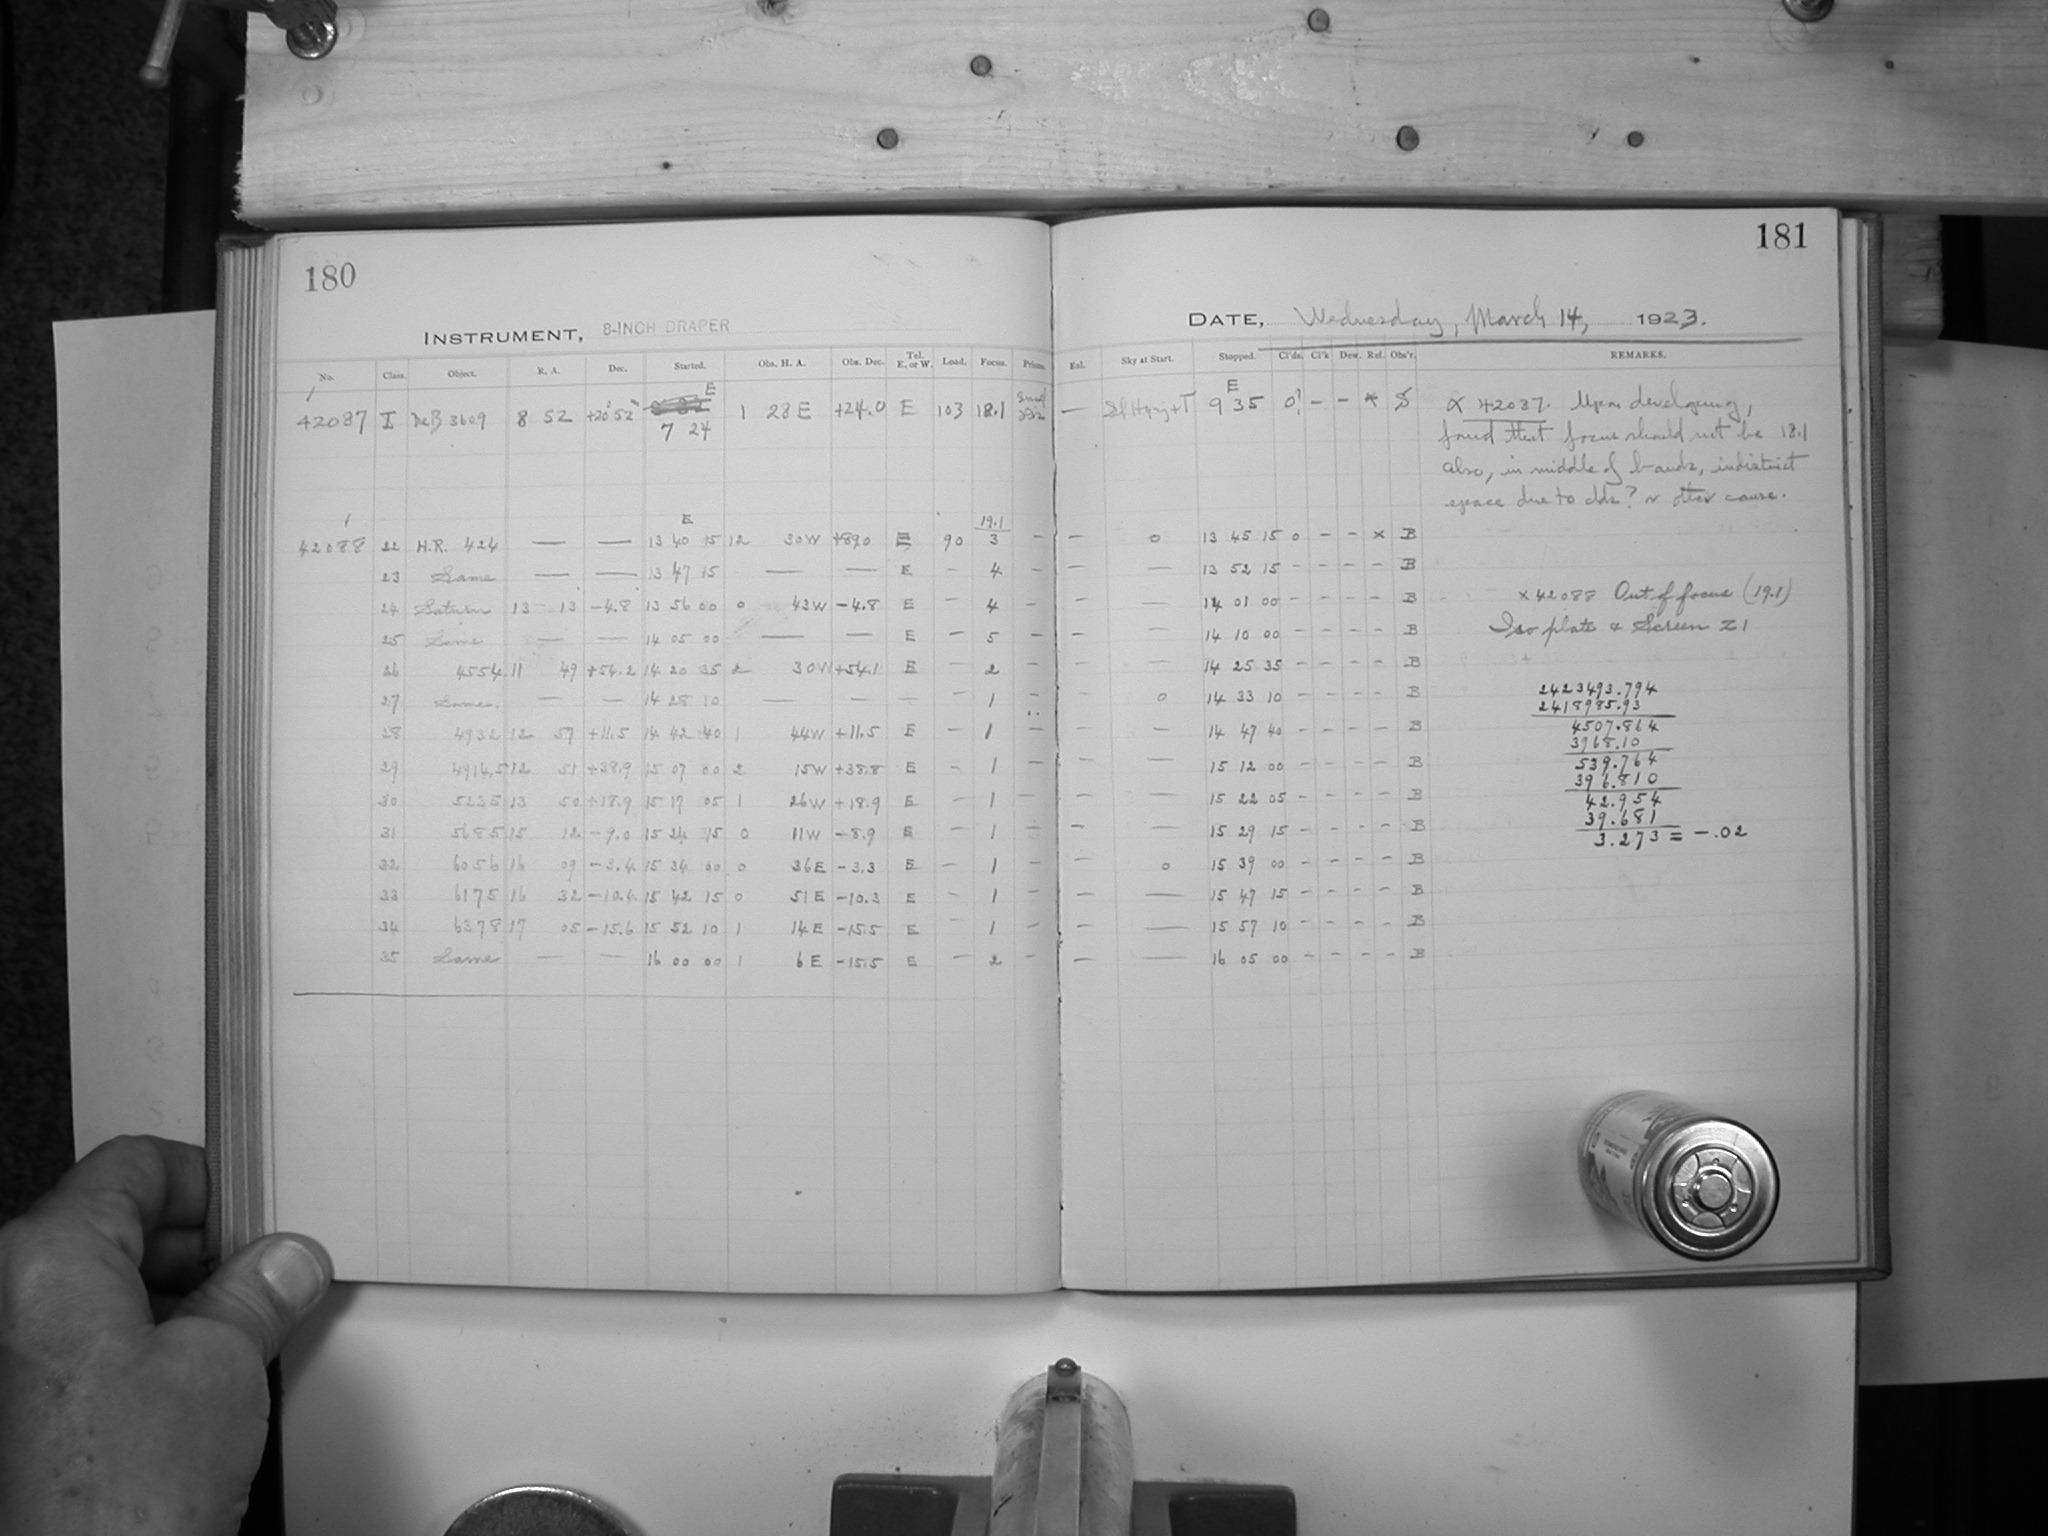 180
181
INSTRUMENT, 8-INCH DRAPER
DATE, Wednesday, March 14, 1923.
No. Class. Object. R. A. Dec. Started. Obs. H. A. Obs. Dec. Tel. E. or W. Load. Focus. Prisms. Enl. Sky at Start. Stopped. Cl'ds. Cl'k Dew. Ref. Obs'r. REMARKS.
E E
42087 I 3609 8 52 +20° 52' 7 24 1 28 E +24.0 E 103 18.1 — 9 35 0? – – x S
X 42087. Upon developing,
found that focus should not be 18.1
also, in middle of bands, indistinct
space due to clds? or other cause.
E 19.1
42088 22 H.R. 424 — — 13 40 15 12 30W +89.0 E 90 3 – – 0 13 45 15 0 – – x B
23 Same — — 13 47 15 — — E – 4 – – — 13 52 15 – – – – B
24 Saturn 13 13 -4.8 13 56 00 0 43W -4.8 E – 4 – – — 14 01 00 – – – – B
25 Same — — 14 05 00 — — E – 5 – – — 14 10 00 – – – – B
26 4554 11 49 +54.2 14 20 35 2 30W +54.1 E – 2 – – — 14 25 35 – – – – B
27 Same. — — 14 28 10 — — — – 1 – – 0 14 33 10 – – – – B
28 4932 12 57 +11.5 14 42 40 1 44W +11.5 E – 1 – – — 14 47 40 – – – – B
29 4914,5 12 51 +38.9 15 07 00 2 15W +38.8 E – 1 – – — 15 12 00 – – – – B
30 5235 13 50 +18.9 15 17 05 1 26W +18.9 E – 1 – – — 15 22 05 – – – – B
31 5685 15 12 -9.0 15 24 15 0 11W -8.9 E – 1 – – — 15 29 15 – – – – B
32 6056 16 09 -3.4 15 34 00 0 36E -3.3 E – 1 – – 0 15 39 00 – – – – B
33 6175 16 32 -10.4 15 42 15 0 51E -10.3 E – 1 – – — 15 47 15 – – – – B
34 6378 17 05 -15.6 15 52 10 1 14E -15.5 E – 1 – – — 15 57 10 – – – – B
35 Same — — 16 00 00 1 6E -15.5 E – 2 – – — 16 05 00 – – – – B
x 42088 Out of focus (19.1)
Iso plate & Screen Z1
2423493.794
2418985.93
4507.864
3968.10
539.764
396.810
42.954
39.681
3.273 = -.02